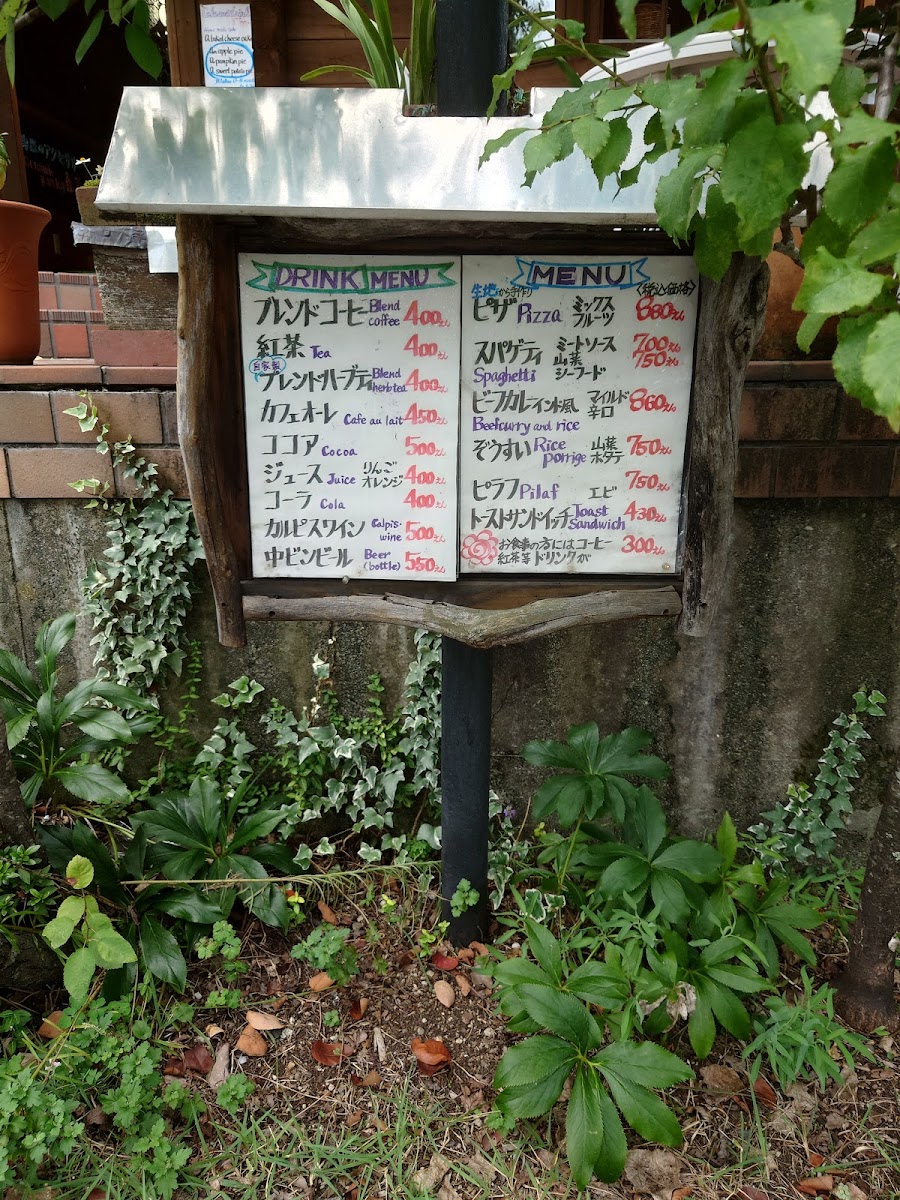 A baked cheese cake
An apple pie
A pumpkin pie
A sweet potato
DRINK MENU
ブレンドコーヒー Blend coffee 400えん
紅茶 Tea 400えん
自家製
ブレンドハーブティ Blend herb tea 400えん
カフェオーレ Cafe au lait 450えん
ココア Cocoa 500えん
ジュース Juice りんご オレンジ 400えん
コーラ Cola 400えん
カルピスワイン Calpis・wine 500えん
中ビンビール Beer (bottle) 550えん
MENU
生地から手作り <税込み価格>
ピザ Pizza ミックス フルーツ 880えん
スパゲティ Spaghetti ミートソース 700えん
山菜 シーフード 750えん
ビーフカレーインド風 マイルド 辛口 860えん
Beef curry and rice
ぞうすい Rice porrige 山菜 ホタテ 750えん
ピラフ Pilaf エビ 750えん
トーストサンドイッチ Toast Sandwich 430えん
お食事の方にはコーヒー 300えん
紅茶等ドリンクが